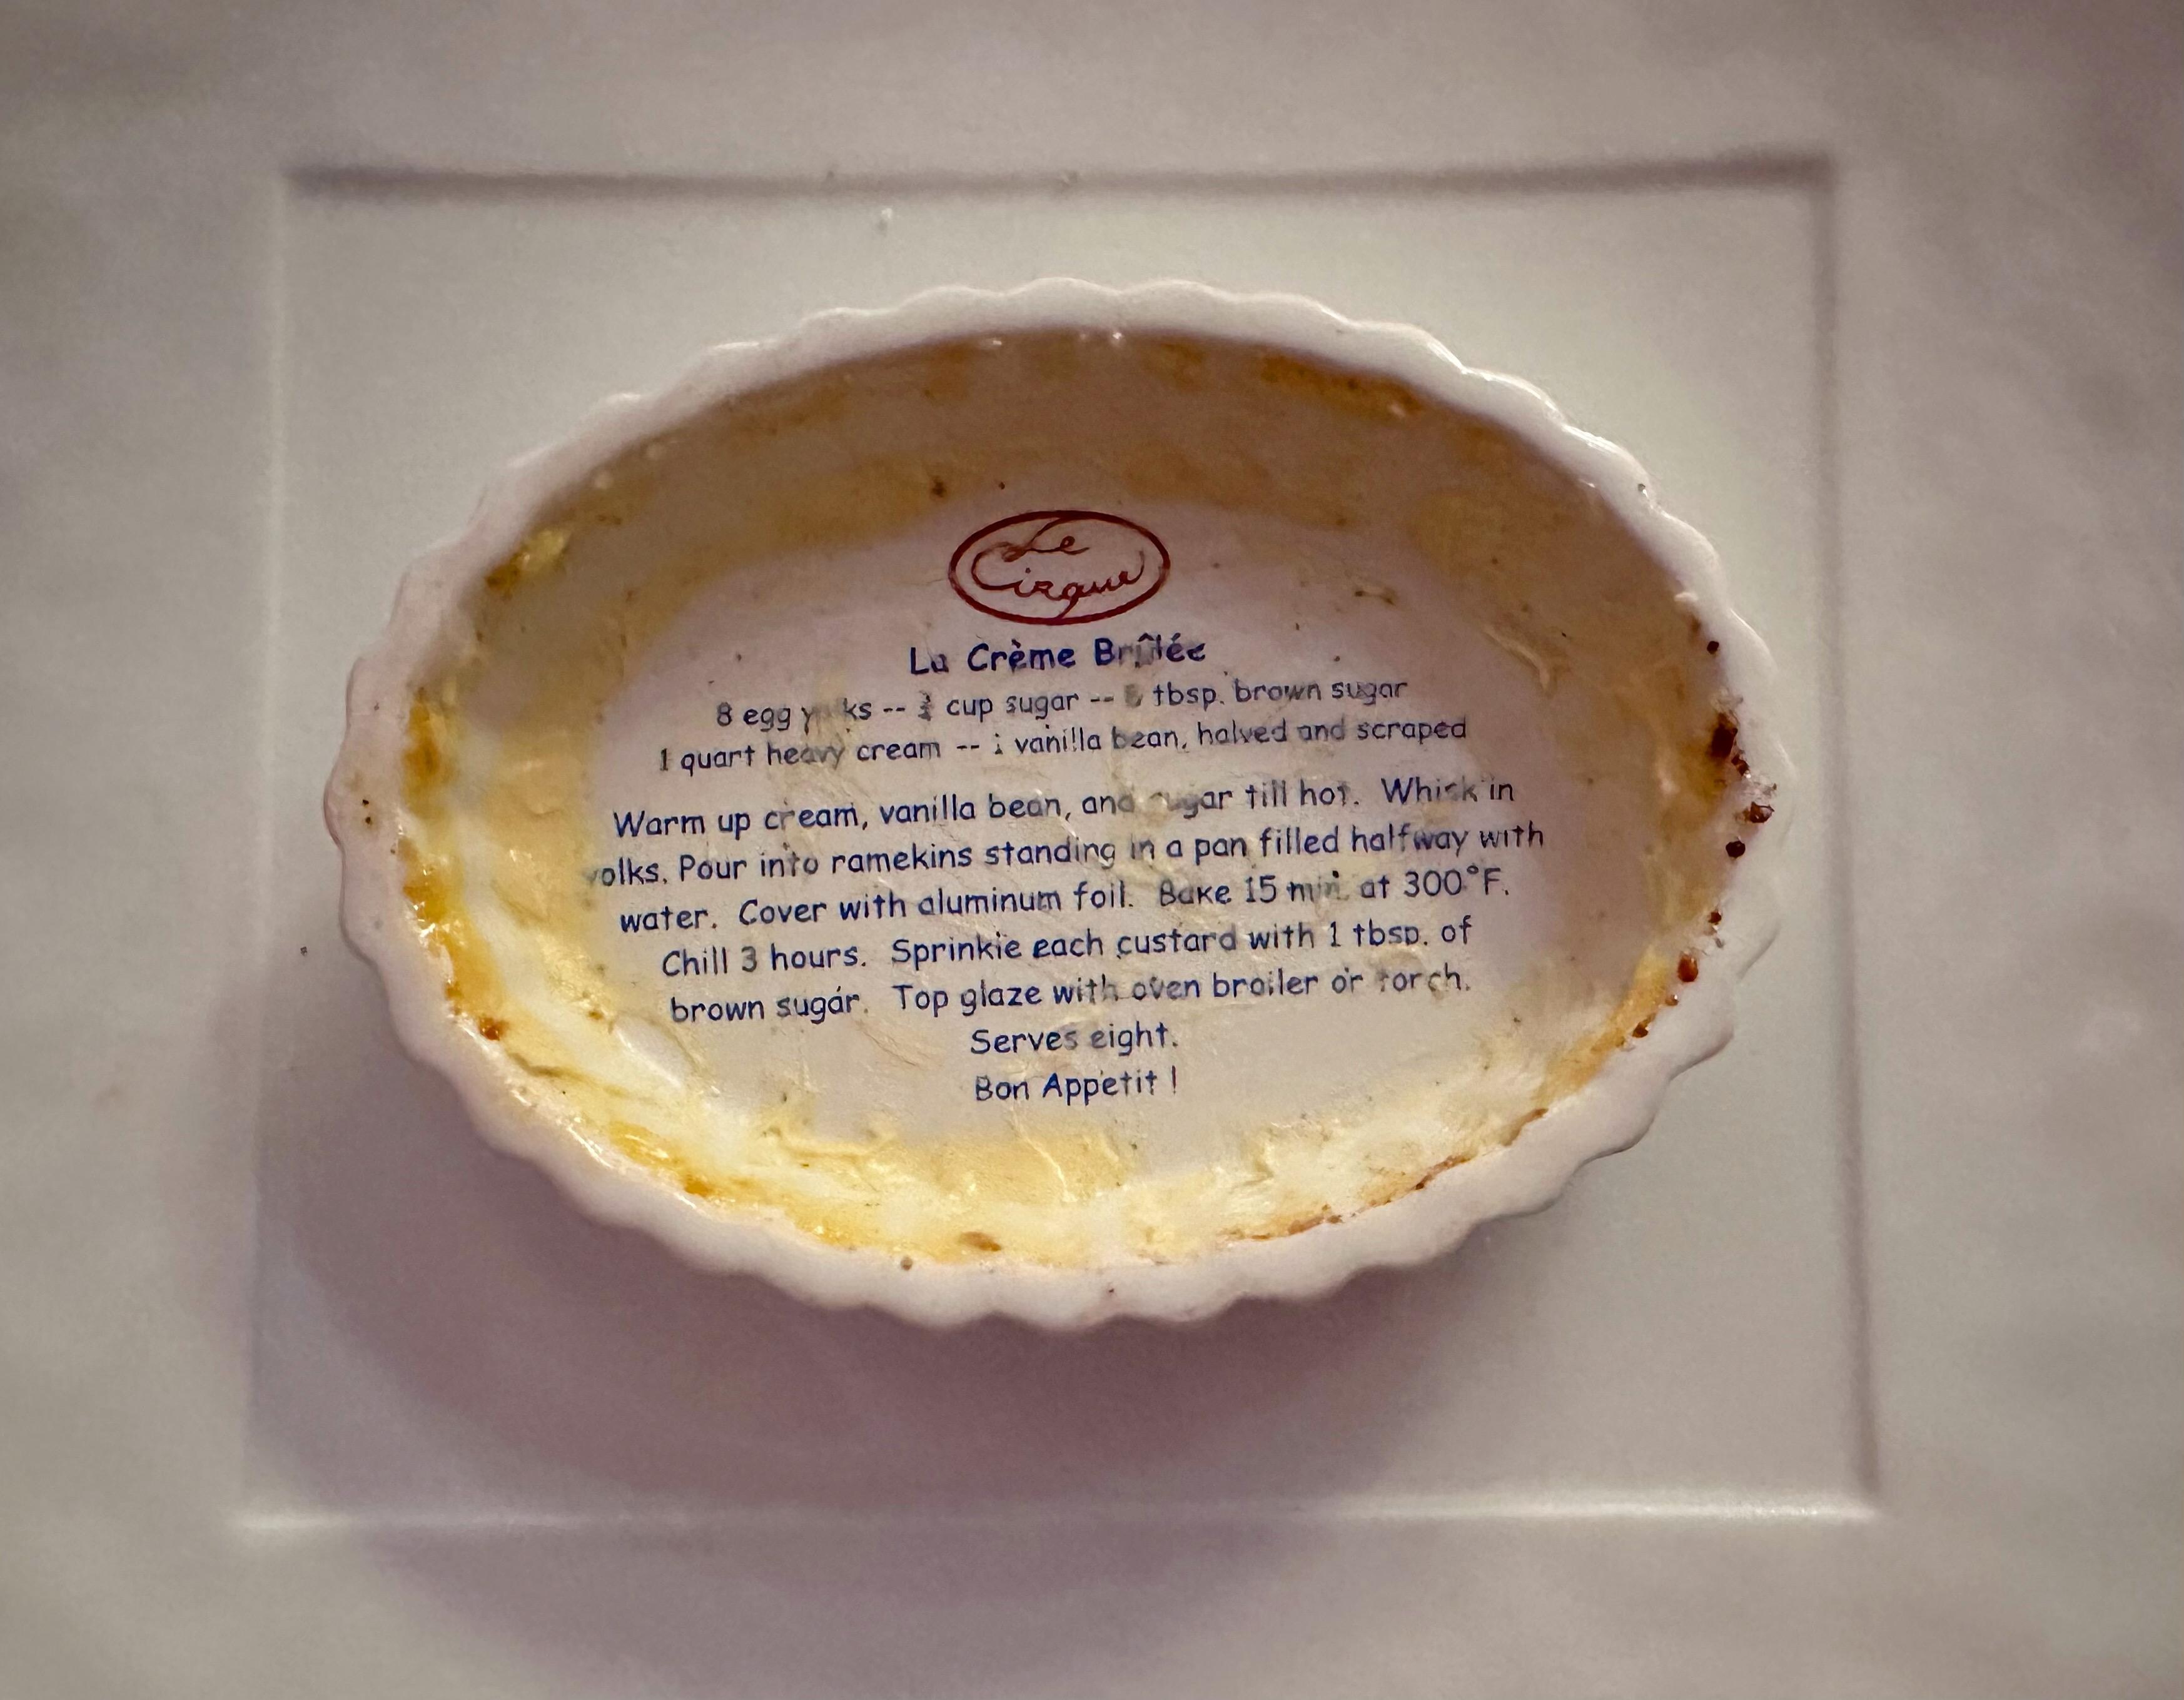 Le
Cirque
La Crème Brûlée
8 egg yolks -- cup sugar -- tbsp. brown sugar
1 quart heavy cream -- 1 vanilla bean, halved and scraped
Warm up cream, vanilla bean, and sugar till hot. Whisk in
yolks. Pour into ramekins standing in a pan filled halfway with
water. Cover with aluminum foil. Bake 15 min. at 300°F.
Chill 3 hours. Sprinkle each custard with 1 tbsp. of
brown sugar. Top glaze with oven broiler or torch.
Serves eight.
Bon Appetit !